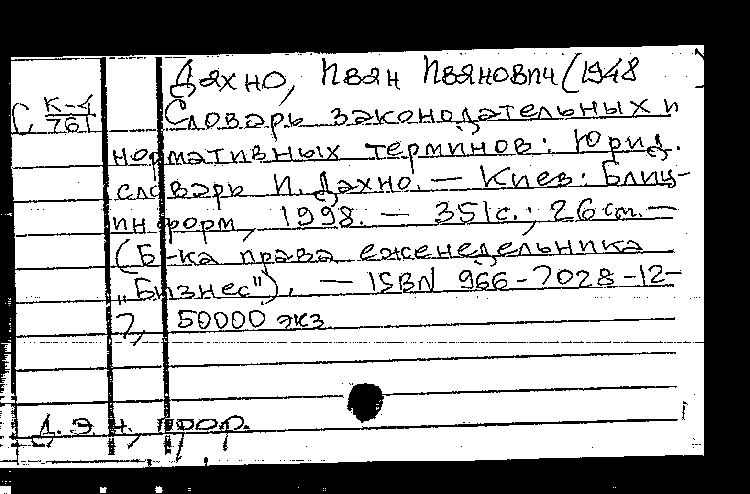 Дахно, Иван Иванович (1948
С К-4/761 Словарь законодательных и
нормативных терминов: Юрид.
словарь И. Дахно. — Киев: Блиц-
информ, 1998. — 351с.; 26 cm. —
(Б-ка права еженедельника
„Бизнес"). — ISBN 966-7028-12-
7, 50000 экз
Д. э. н., проф.